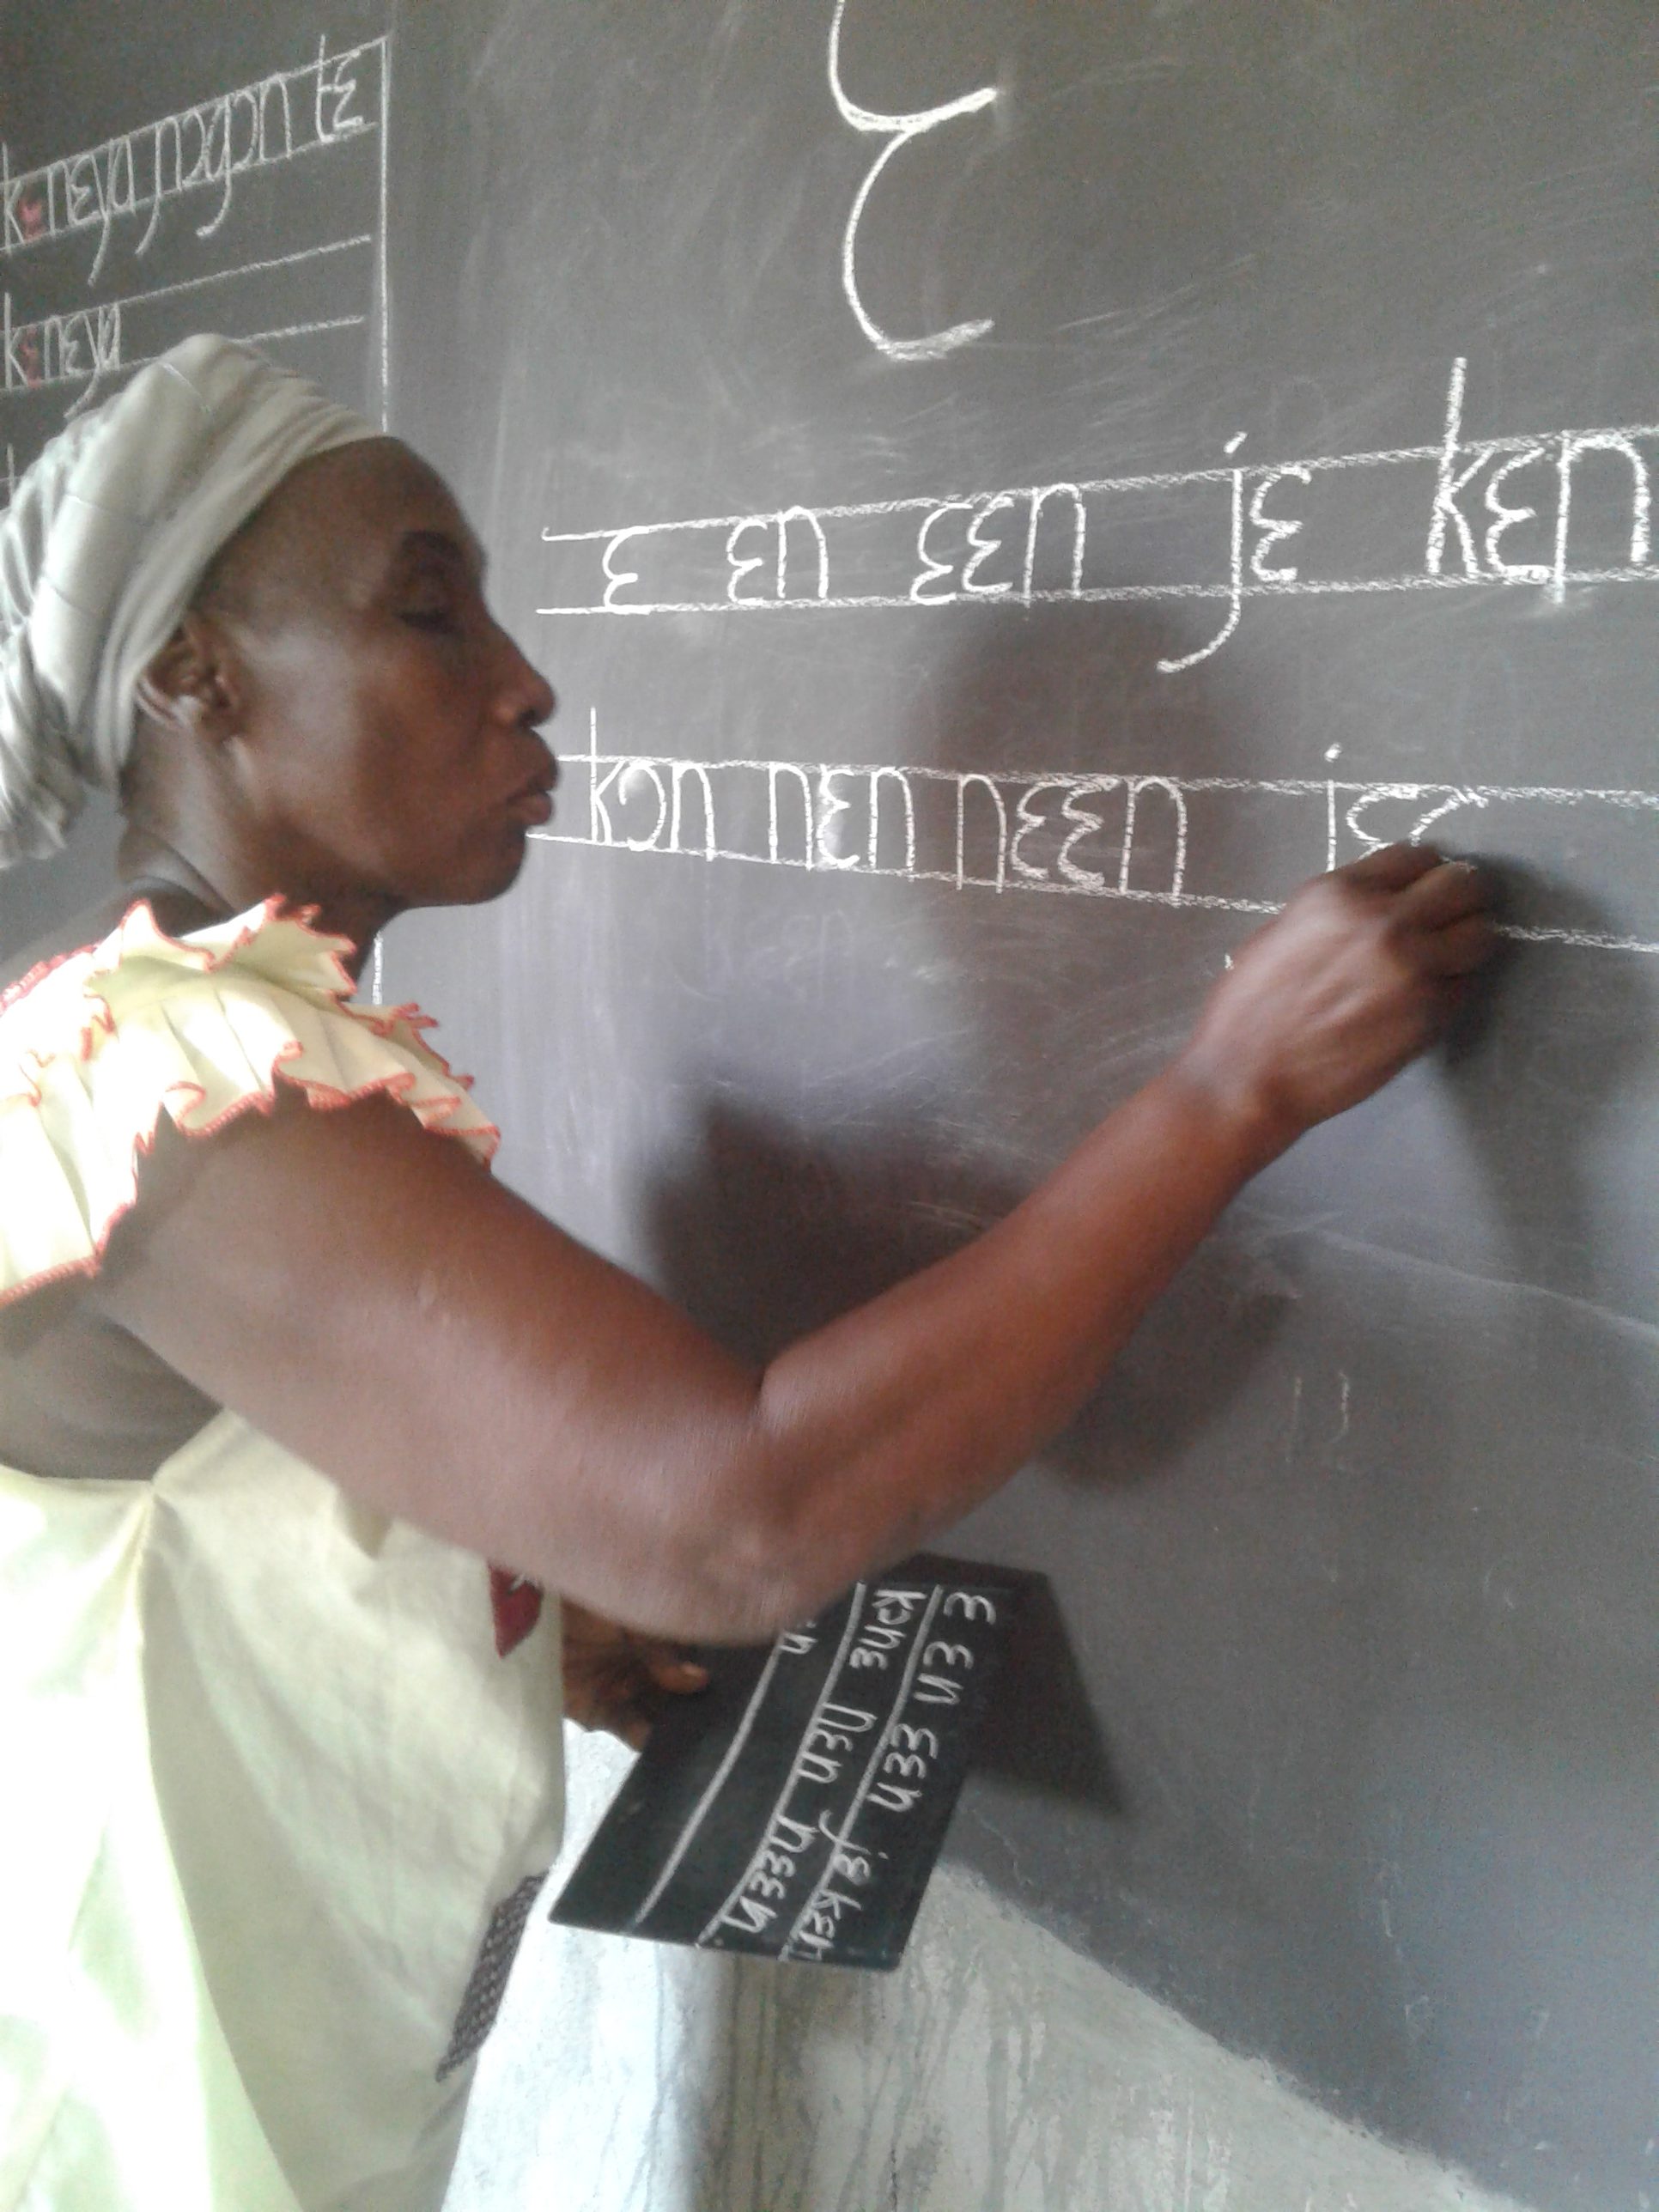 kɛnɛya ɲagɔn tɛ
kɛnɛya
ɛ
ɛ ɛn ɛɛn jɛ kɛn
kɔn nɛn ŋɛɛn jɛ
ɛ ɛn ɛɛn jɛ kɛn
kɔnɛ nɛn ɲɛɛn